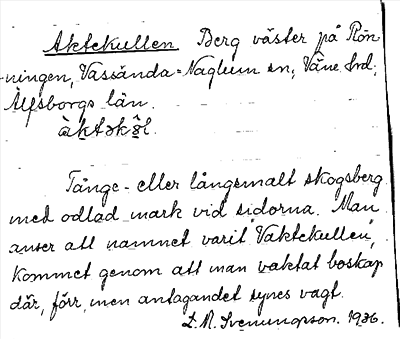 Aktekullen Berg väster på Rön-
ningen, Vassända=Naglum sn; Väne hrd;
Älfsborgs län.
àktəkùl.
Tånge- eller långsmalt skogsberg
med odlad mark vid sidorna. Man
anser att namnet varit Vaktekullen,
kommet genom att man vaktat boskap
där, förr, men antagandet synes vagt.
L. M. Svenungsson. 1936.